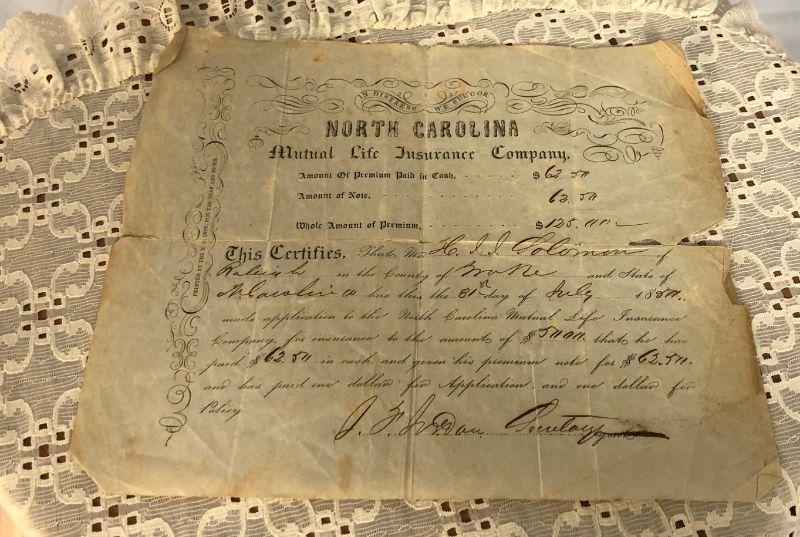 IN DISTRESS WE SUCCOR
NORTH CAROLINA
Mutual Life Insurance Company.
Amount Of Premium Paid in Cash. $62.50
Amount of Note. 62.50
Whole Amount of Premium. $125.00
This Certifies, That Mr H. J. J. Solomon of
Raleigh in the County of Wake and State of
N Carolina has this the 31st day of July 185
made application to the North Carolina Mutual Life Insurance
Company for insurance to the amount of $5000 that he has
paid $62.50 in cash and given his premium note for $62.50
and has paid one dollar for Application and one dollar for
Policy
J. F. Jordan Secretary
PRINTED AT THE N. C. INST. FOR THE DEAF AND DUMB.